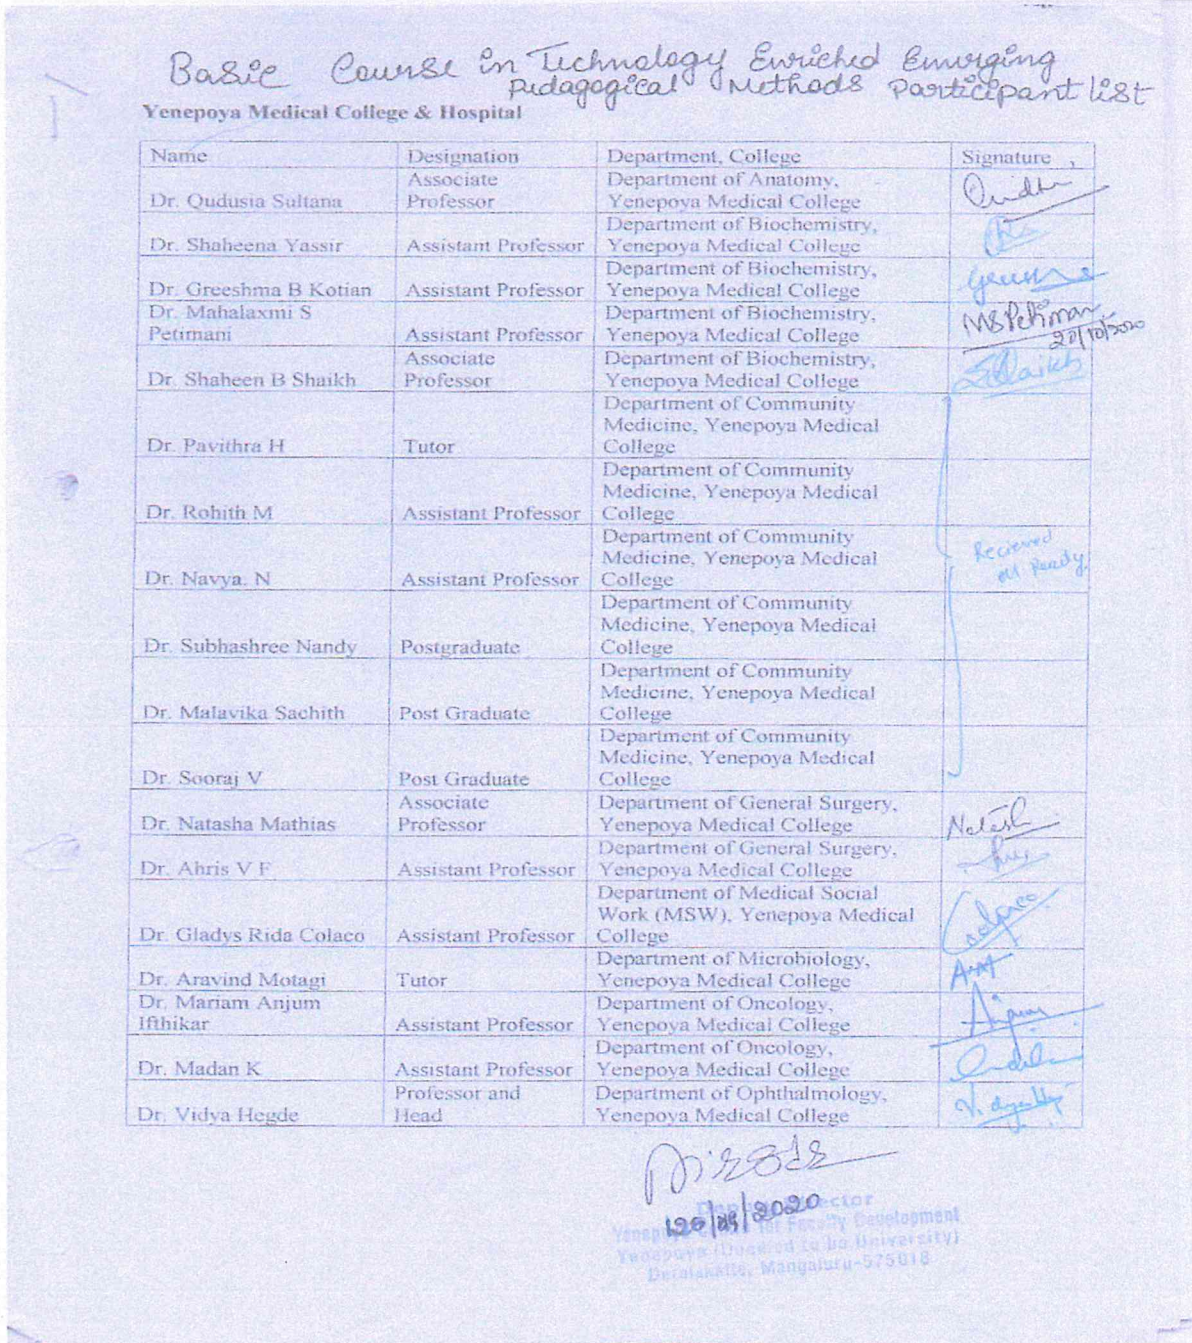 Basic Course in Technology Enriched Emerging
Pedagogical Methods Participant list
Yenepoya Medical College & Hospital
Name Designation Department, College Signature
Dr. Qudusia Sultana Associate Professor Department of Anatomy, Yenepoya Medical College
Dr. Shaheena Yassir Assistant Professor Department of Biochemistry, Yenepoya Medical College
Dr. Greeshma B Kotian Assistant Professor Department of Biochemistry, Yenepoya Medical College
Dr. Mahalaxmi S Petimani Assistant Professor Department of Biochemistry, Yenepoya Medical College MSPetimani 20/10/2020
Dr. Shaheen B Shaikh Associate Professor Department of Biochemistry, Yenepoya Medical College
Dr. Pavithra H Tutor Department of Community Medicine, Yenepoya Medical College
Dr. Rohith M Assistant Professor Department of Community Medicine, Yenepoya Medical College
Dr. Navya. N Assistant Professor Department of Community Medicine, Yenepoya Medical College
Recieved
all Ready
Dr. Subhashree Nandy Postgraduate Department of Community Medicine, Yenepoya Medical College
Dr. Malavika Sachith Post Graduate Department of Community Medicine, Yenepoya Medical College
Dr. Sooraj V Post Graduate Department of Community Medicine, Yenepoya Medical College
Dr. Natasha Mathias Associate Professor Department of General Surgery, Yenepoya Medical College Natash
Dr. Ahris V F Assistant Professor Department of General Surgery, Yenepoya Medical College
Dr. Gladys Rida Colaco Assistant Professor Department of Medical Social Work (MSW), Yenepoya Medical College Colaco
Dr. Aravind Motagi Tutor Department of Microbiology, Yenepoya Medical College
Dr. Mariam Anjum Ifthikar Assistant Professor Department of Oncology, Yenepoya Medical College Anjum
Dr. Madan K Assistant Professor Department of Oncology, Yenepoya Medical College
Dr. Vidya Hegde Professor and Head Department of Ophthalmology, Yenepoya Medical College
Deputy Director
Yenepoya for Faculty Development
Yenepoya (Deemed to be University)
Deralakatte, Mangaluru-575018